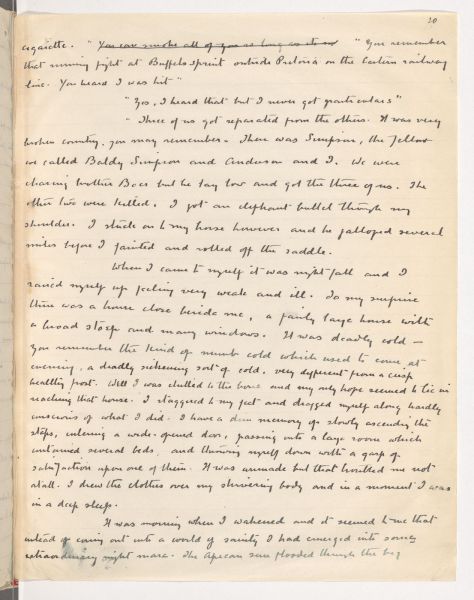 20
cigarette. " You can smoke all of you as long as its no " "You remember
that running fight at Buffelsspruit outside Pretoria on the Eastern railway
line. You heard I was hit"
"Yes, I heard that but I never got particulars"
"Three of us got separated from the others. It was very
broken country, you may remember. There was Simpson, the fellow
we called Baldy Simpson and Anderson and I. We were
chasing brother Boer but he lay low and got the three of us. The
other two were killed. I got an elephant bullet through my
shoulder. I stuck on to my horse however and he galloped several
miles before I fainted and rolled off the saddle.
When I came to myself it was night fall and I
raised myself up feeling very weak and ill. To my surprise
there was a house close beside me, a fairly large house with
a broad stoep and many windows. It was deadly cold —
You remember the kind of numb cold which used to come at
evening, a deadly sickening sort of cold, very different from a crisp
healthy frost. Well I was chilled to the bone and my only hope seemed to lie in
reaching that house. I staggered to my feet and dragged myself along hardly
conscious of what I did. I have a dim memory of slowly ascending the
steps, entering a wide-opened door, passing into a large room which
contained several beds, and throwing myself down with a gasp of
satisfaction upon one of them. It was unmade but that troubled me not
at all. I drew the clothes over my shivering body and in a moment I was
in a deep sleep.
It was morning when I wakened and it seemed to me that
instead of coming out into a world of sanity I had emerged into some
extraordinary night mare. The African sun flooded through the big